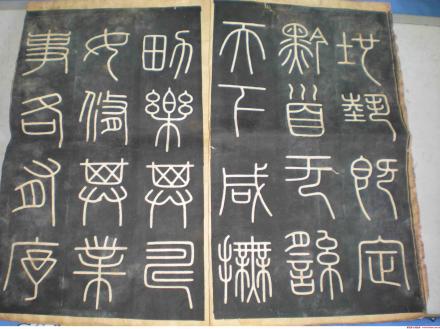 地埶既定
黔首无繇
天下咸撫
男樂其疇
女修其業
事各有序